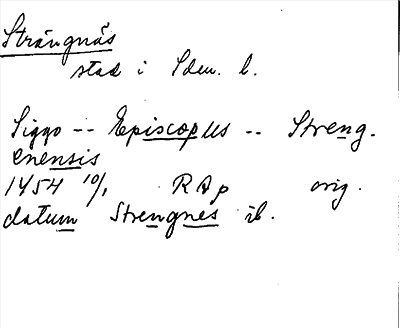 Strängnäs
stad i Sdm. l.
Siggo -- Episcopus -- Streng.
enensis
1454 10/1 RAp orig.
datum Strengnes ib.